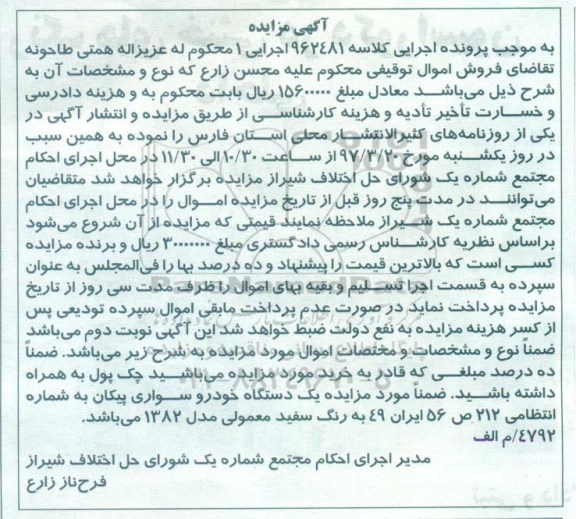 آگهی مزایده
به موجب پرونده اجرایی کلاسه ۹۶۲۴۸۱ اجرایی ۱ محکوم له عزیزاله همتی طاحونه
تقاضای فروش اموال توقیفی محکوم علیه محسن زارع که نوع و مشخصات آن به
شرح ذیل می‌باشد معادل مبلغ ۱۵۶۰۰۰۰۰ ریال بابت محکوم به و هزینه دادرسی
و خسارت تأخیر تأدیه و هزینه کارشناسی از طریق مزایده و انتشار آگهی در
یکی از روزنامه‌های کثیرالانتشار محلی استان فارس را نموده به همین سبب
در روز یکشنبه مورخ ۹۷/۳/۲۰ از ساعت ۱۰/۳۰ الی ۱۱/۳۰ در محل اجرای احکام
مجتمع شماره یک شورای حل اختلاف شیراز مزایده برگزار خواهد شد متقاضیان
می‌توانند در مدت پنج روز قبل از تاریخ مزایده اموال را در محل اجرای احکام
مجتمع شماره یک شیراز ملاحظه نمایند قیمتی که مزایده از آن شروع می‌شود
براساس نظریه کارشناس رسمی دادگستری مبلغ ۳۰۰۰۰۰۰۰ ریال و برنده مزایده
کسی است که بالاترین قیمت را پیشنهاد و ده درصد بها را فی‌المجلس به عنوان
سپرده به قسمت اجرا تسلیم و بقیه بهای اموال را ظرف مدت سی روز از تاریخ
مزایده پرداخت نماید در صورت عدم پرداخت مابقی اموال سپرده تودیعی پس
از کسر هزینه مزایده به نفع دولت ضبط خواهد شد این آگهی نوبت دوم می‌باشد
ضمناً نوع و مشخصات و مختصات اموال مورد مزایده به شرح زیر می‌باشد. ضمناً
ده درصد مبلغی که قادر به خرید مورد مزایده می‌باشید چک پول به همراه
داشته باشید. ضمناً مورد مزایده یک دستگاه خودرو سواری پیکان به شماره
انتظامی ۲۱۲ ص ۵۶ ایران ۴۹ به رنگ سفید معمولی مدل ۱۳۸۲ می‌باشد.
۴۷۹۲/م الف
مدیر اجرای احکام مجتمع شماره یک شورای حل اختلاف شیراز
فرح‌ناز زارع